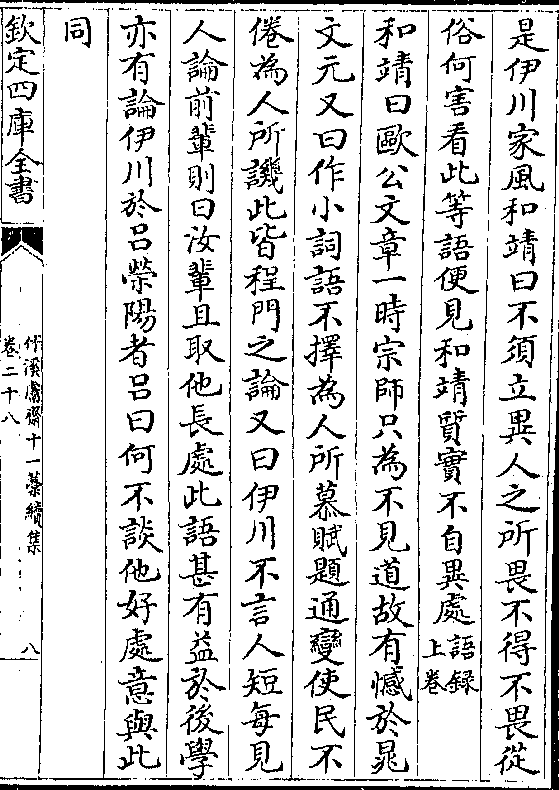 是伊川家風和靖曰不須立異人之所畏不得不畏從
俗何害看此等語便見和靖質實不自異處語録上卷
和靖曰歐公文章一時宗師只為不見道故有憾於晁
文元又曰作小詞語不擇為人所慕賦題通變使民不
倦為人所譏此皆程門之論又曰伊川不言人短每見
人論前輩則曰汝輩且取他長處此語甚有益於後學
亦有論伊川於吕滎陽者吕曰何不談他好處意與此
同
欽定四庫全書
竹溪鬳齋十一藁續集
卷二十八
八